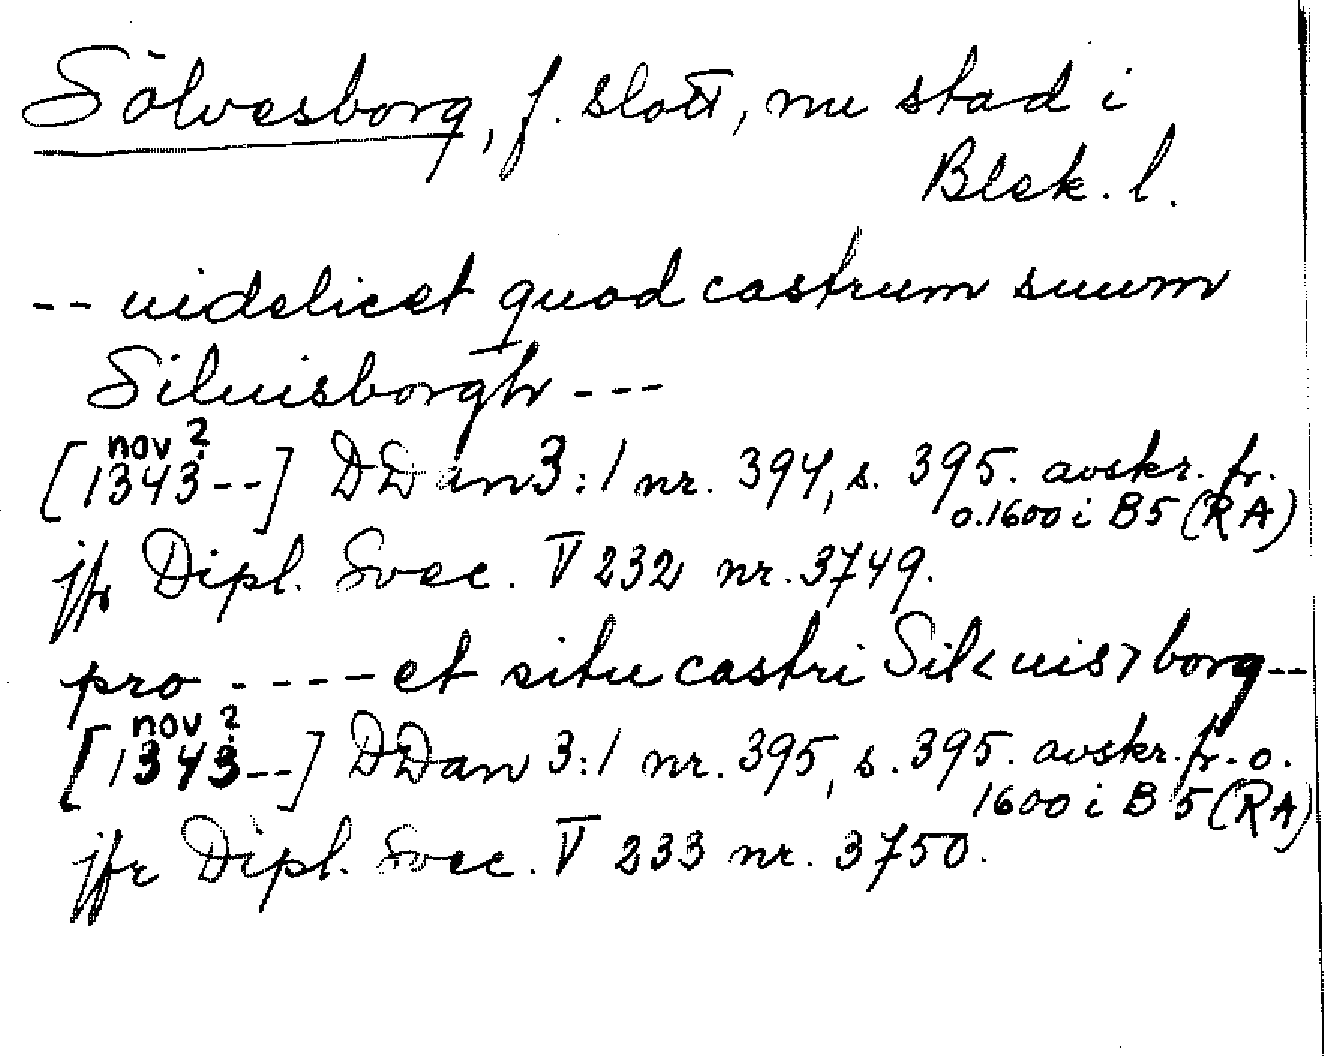 Sölvesborg, f. slott, nu stad i
Blek. l.
-- uidelicet quod castrum suum
Siluisborgh ---
nov ?
[1343--] DDan 3:1 nr. 394, s. 395. avskr. fr.
o. 1600 i B5 (RA)
jfr Dipl. Svec. V 232 nr. 3749.
pro ----- et situ castri Sil<uis>borg--
nov ?
[1343--] DDan 3:1 nr. 395, s. 395. avskr. fr. o.
1600 i B5 (RA)
jfr Dipl. Svec. V 233 nr. 3750.